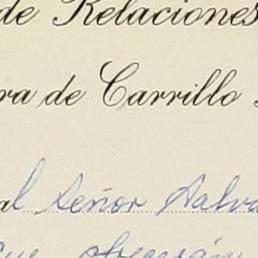 de Relaciones
ra de Carrillo
al Señor Salva
que ofrecerán